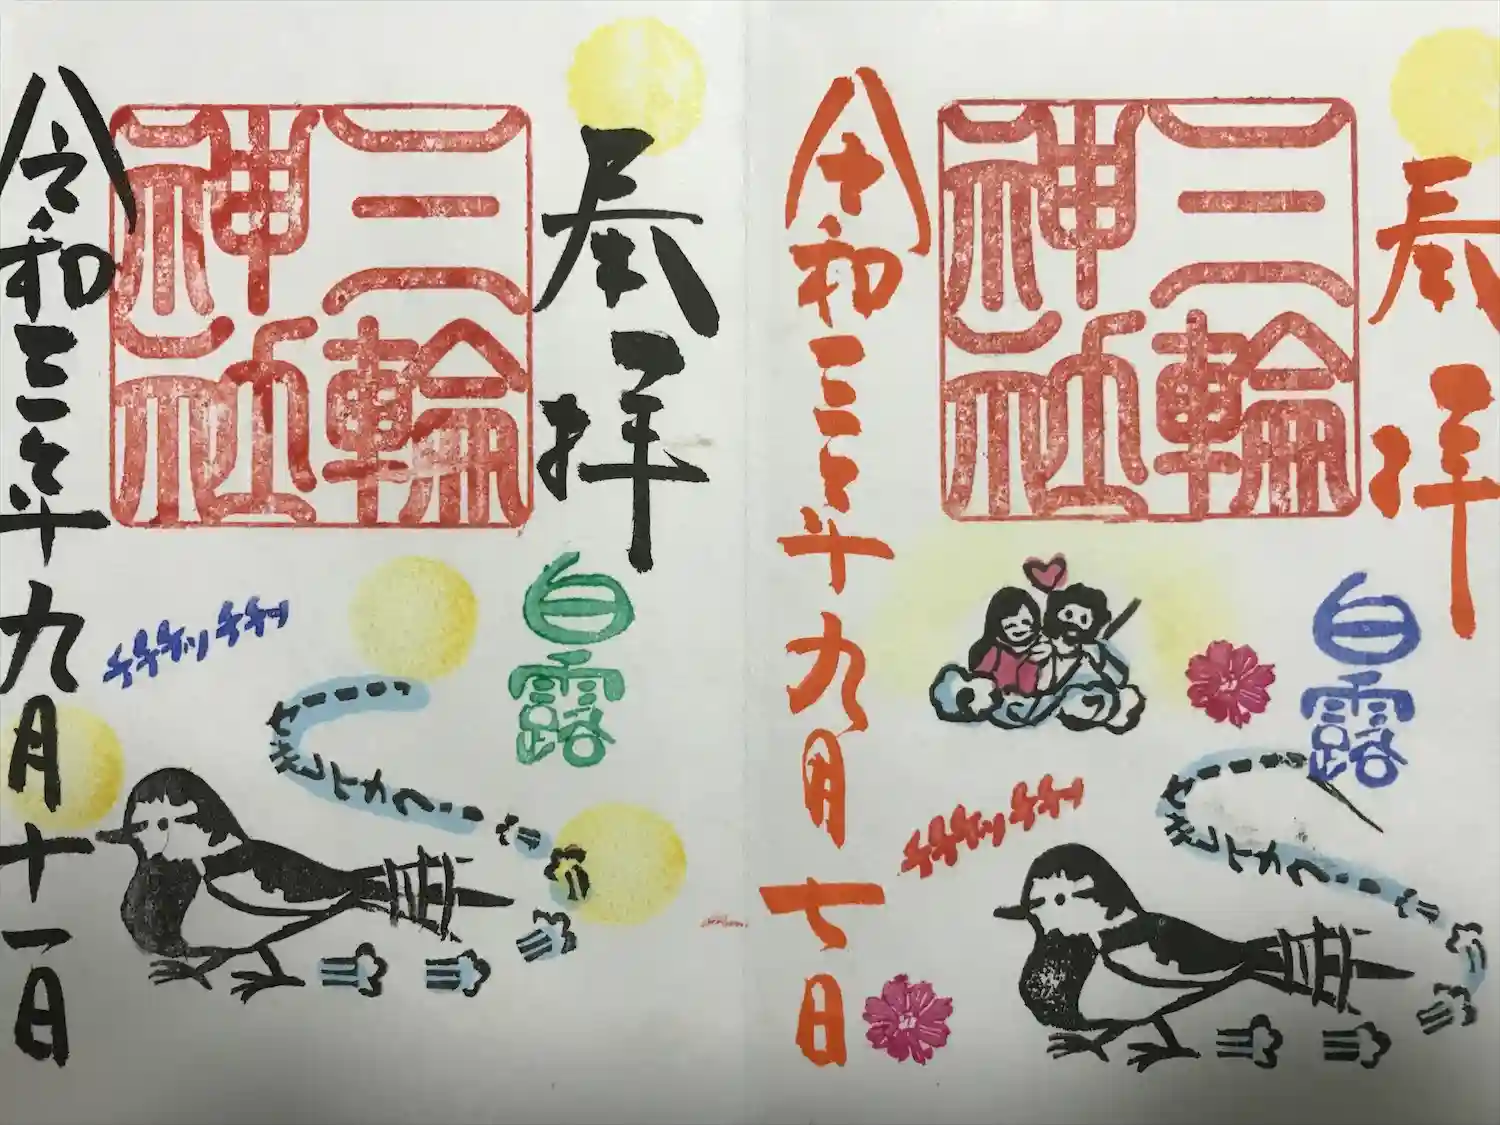 奉拝
三輪
神社
白露
セキレイナク
チチチッチチッ
令和三年九月七日
奉拝
三輪
神社
白露
セキレイナク
チチチッチチッ
令和三年九月十一日